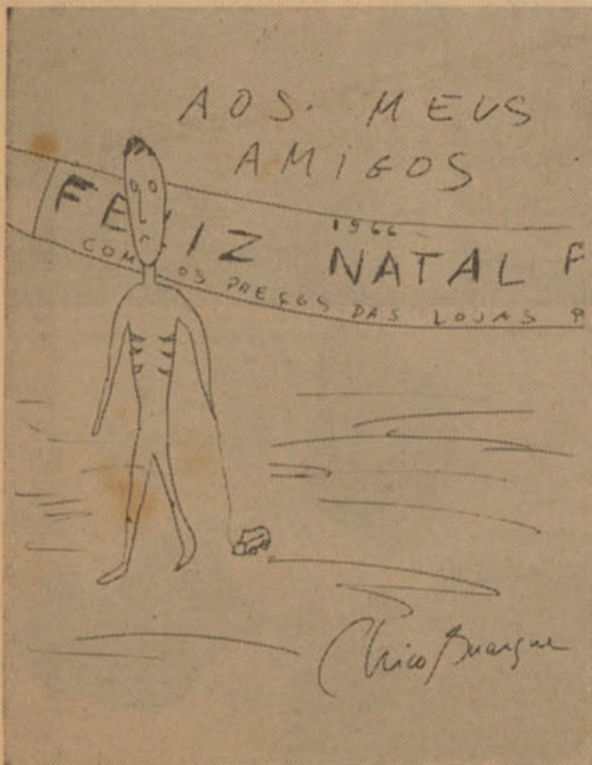 AOS. MEUS
AMIGOS
1966
FELIZ NATAL F
COM OS PREÇOS DAS LOJAS
Chico Buarque